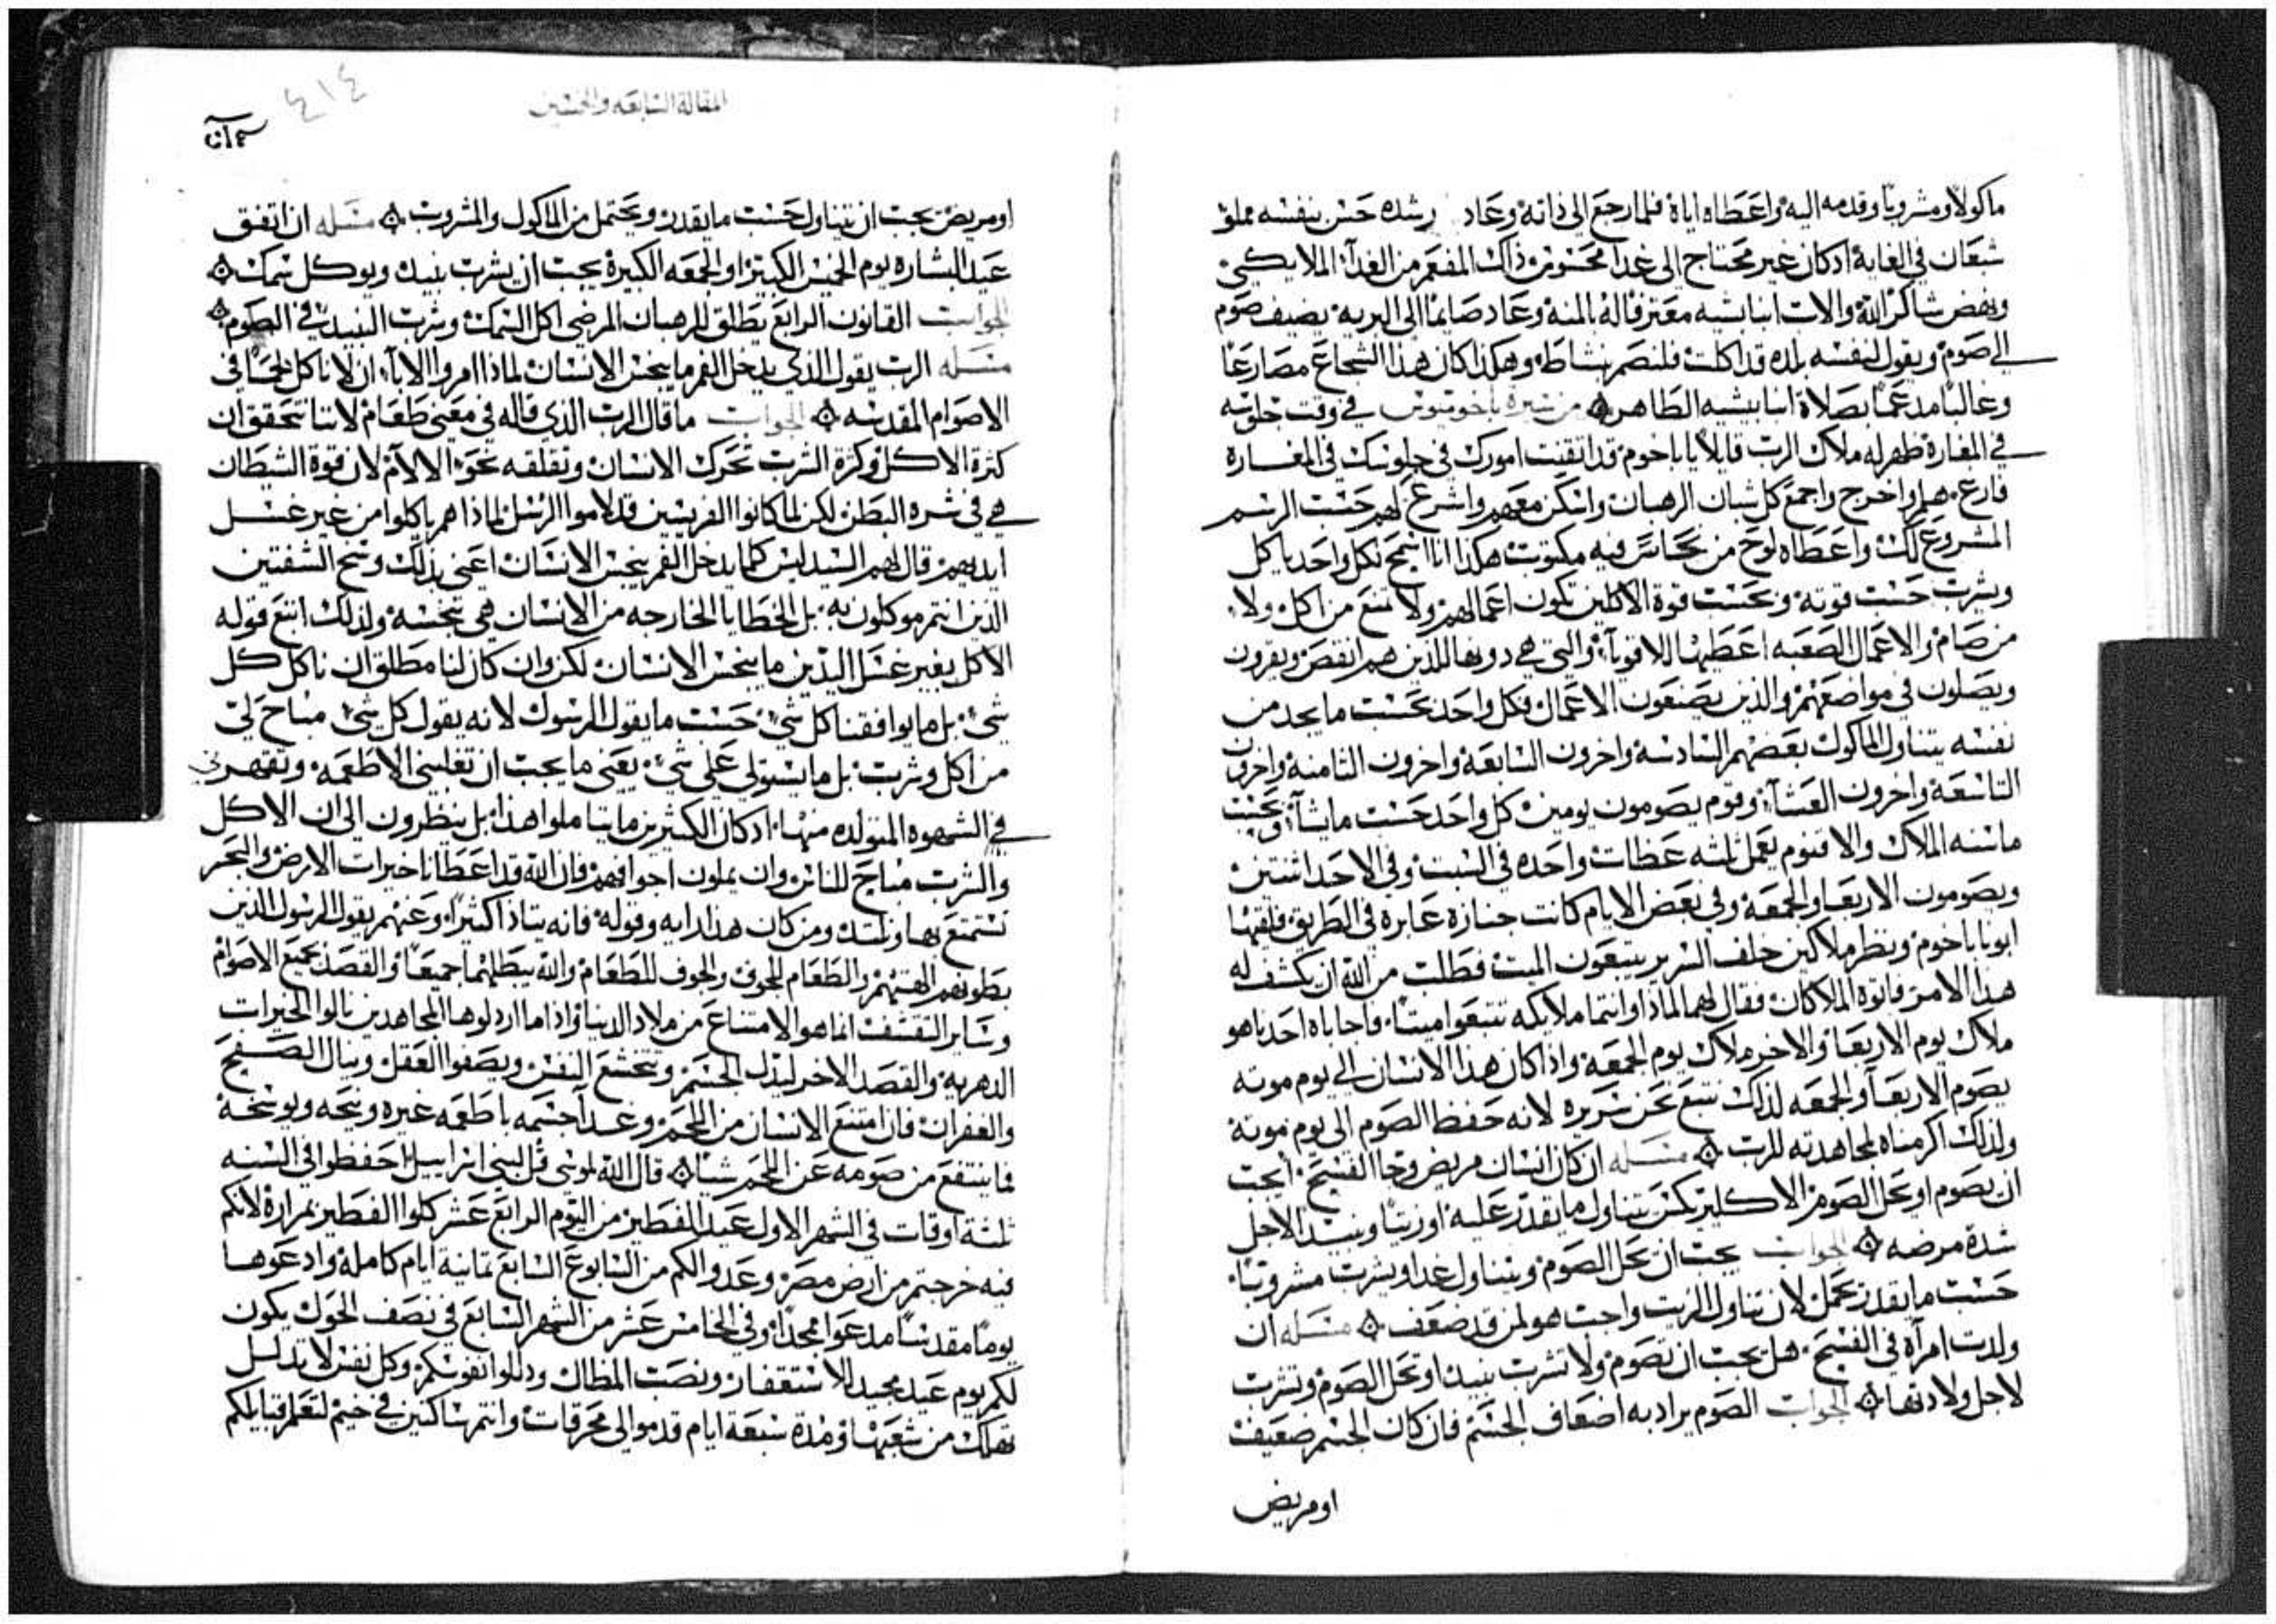 ماكولا ومشروبا وقدمه اليه واعطاه اياه فلما رجع الى ذاته وعاد رشده حس بنفسه مملو
شبعان في الغايه ادكان غير محتاج الى غدا محسوس ذاك المفعم من الغدا الملايكي
ونهض شاكرا لله ولالات انبا بشيه معترفا له بالمنه وعاد صايما الى البريه يضيف صوم
الى صوم ويقول لنفسه يلده قد اكلت فلنصم بنشاط وهكذا كان هذا الشجاع مصارعا
وغالبا مدعما بصلاة انبا بيشيه الطاهر من سيرة باخوميوس في وقت خلوته
في المغارة ظهر له ملاك الرب قايلا يا باخوم قد اتقنت امورك في خلوتك في المغاره
فارع هلم اخرج واجمع كل شبان الرهبان واسكن معهم واشرع لهم حسب الرسم
المشروع لك واعطاه لوح من نحاس فيه مكتوب هكذا انا اسمح لكل واحد ياكل
ويشرب حسب قوته وبحسب قوة الاكلين تكون اعمالهم ولا تمنع من اكل ولا
من صام والاعمال الصعبه اعطيها للاقويا والتي هي دونها للذين هم انقص ويقرون
ويصلون في مواضعهم والذين يصنعون الاعمال فكل واحد بحسب ما يجد من
نفسه يتناول الماكول بعضهم السادسه واخرون السابعه واخرون الثامنه واخرون
التاسعه واخرون العشا وقوم يصومون يومين كل واحد حسب ما يشا وبحسب
ماسنه الملاك والاقنوم يعمل ثلثه عظات واحده في السبت وفي الاحد اثنتين
ويصومون الاربعا والجمعه وفي بعض الايام كانت جنازه عابره في الطريق فلقيها
ابونا باخوم ونظر ملاكين خلف السرير يتبعون الميت فطلب من الله ان يكشف له
هذا الامر فاتوه الملاكان فقال لهما لماذا وانتما ملايكه تتبعوا ميتا فاجاباه احدنا هو
ملاك يوم الاربعا والاخر ملاك يوم الجمعه واذا كان هذا الانسان الى يوم موته
يصوم الاربعا والجمعه لذلك نتبع نحن سريره لانه حفظ الصوم الى يوم موته
ولذلك اكرمناه لمجاهدته للرب مسله ان كان انسان مريض وجا الفسح ايجب
ان يصوم او يحل الصوم الاكلير يكس يتناول ما يقدر عليه او زيتا ونبيد الاجل
شدة مرضه الجواب يجب ان يحل الصوم ويتناول غدا ويشرب مشروبا
حسب ما يقدر يحمل لان تناول الزيت واجب هو لمن قد ضعف مسله ان
ولدت امرآه في الفسح هل يجب ان تصوم ولا تشرب نبيد او تحل الصوم وتشرب
لاجل ولادتها الجواب الصوم يراد به اضعاف الجسم فان كان الجسم ضعيف
او مريض
المقالة السابعه والخمسين
٤١٤
او مريض يجب ان يتناول حسب ما يقدر ويحتمل من الماكول والمشروب مسله ان اتفق
عيد البشاره يوم الخميس الكبير او الجمعه الكبيرة يجب ان يشرب نبيد ويوكل سمك
الجواب القانون الرابع يطلق للرهبان المرضى اكل السمك وشرب النبيد في الصوم
مسله الرب يقول الذي يدخل الفم ما ينجس الانسان لماذا امروا الابآ ان لا ناكل لحما في
الاصوام المقدسه الجواب ما قال الرب الذي قاله في معنى طعام لاننا نتحقق ان
كثرة الاكل وكثرة الشرب تحرك الانسان وتقلقه نحو الالام لان قوة الشيطان
هي في شره البطن لكن لما كانوا الفريسين قد لاموا الرسل لماذا هم ياكلوا من غير غسل
ايديهم قال لهم السيد ليس كلما يدخل الفم ينجس الانسان اعني بذلك وسخ الشفتين
الذين انتم موكلون به بل الخطايا الخارجه من الانسان هي تنجسه ولذلك اتبع قوله
الاكل بغير غسل اليدين ما ينجس الانسان لكن وان كان لنا مطلق ان ناكل كل
شي بل ما يوافقنا كل شي حسب ما يقول الرسول لانه يقول كل شي مباح لي
من اكل وشرب بل ما يستولى على شي يعني ما يجب ان تغلبني الاطعمه وتقهرني
في الشهوه المتولده منها ادكان الكثيرين ما يتاملوا هذا بل ينظرون الى ان الاكل
والشرب مباح للناس وان يملون اجوافهم فان الله قد اعطانا خيرات الارض والبحر
نستمتع بها ونلتد ومن كان هذا رايه وقوله فانه يتاذا كثيرا وعنهم يقول الرسول الذين
بطونهم الهتهم والطعام للجوف والجوف للطعام والله يبطلهما جميعا والقصد بجميع الاصوام
وساير التقشف انما هو الامتناع من ملاد الدنيا واذا ما اردلوها المجاهدين نالوا الخيرات
الدهريه والقصد الاخر ليذل الجسم ويتخشع النفس ويصفوا العقل وينال الصفح
والغفران فان امتنع الانسان من اللحم وغدا جسمه باطعمه غيره ونيحه ويوسخه
فما ينتفع من صومه عن اللحم شيا قال الله لموسى قل لبني اسراييل احفظوا في السنه
ثلثة اوقات في الشهر الاول عيد الفطير من اليوم الرابع عشر كلوا الفطير بمرارة لانكم
فيه خرجتم من ارض مصر وعدوا لكم من السابوع السابع ثمانية ايام كاملة وادعوها
يوما مقدسا مدعوا ممجدا وفي الخامس عشر من الشهر السابع في نصف الحول يكون
لكم يوم عيد مجيد للاستغفار ونصب المظال ودللوا نفوسكم وكل نفس لا تدلل
تهلك من شعبها ومدة سبعة ايام قدموا لي محرقات وانتم ساكنين في خيم لتعلم قبايلكم